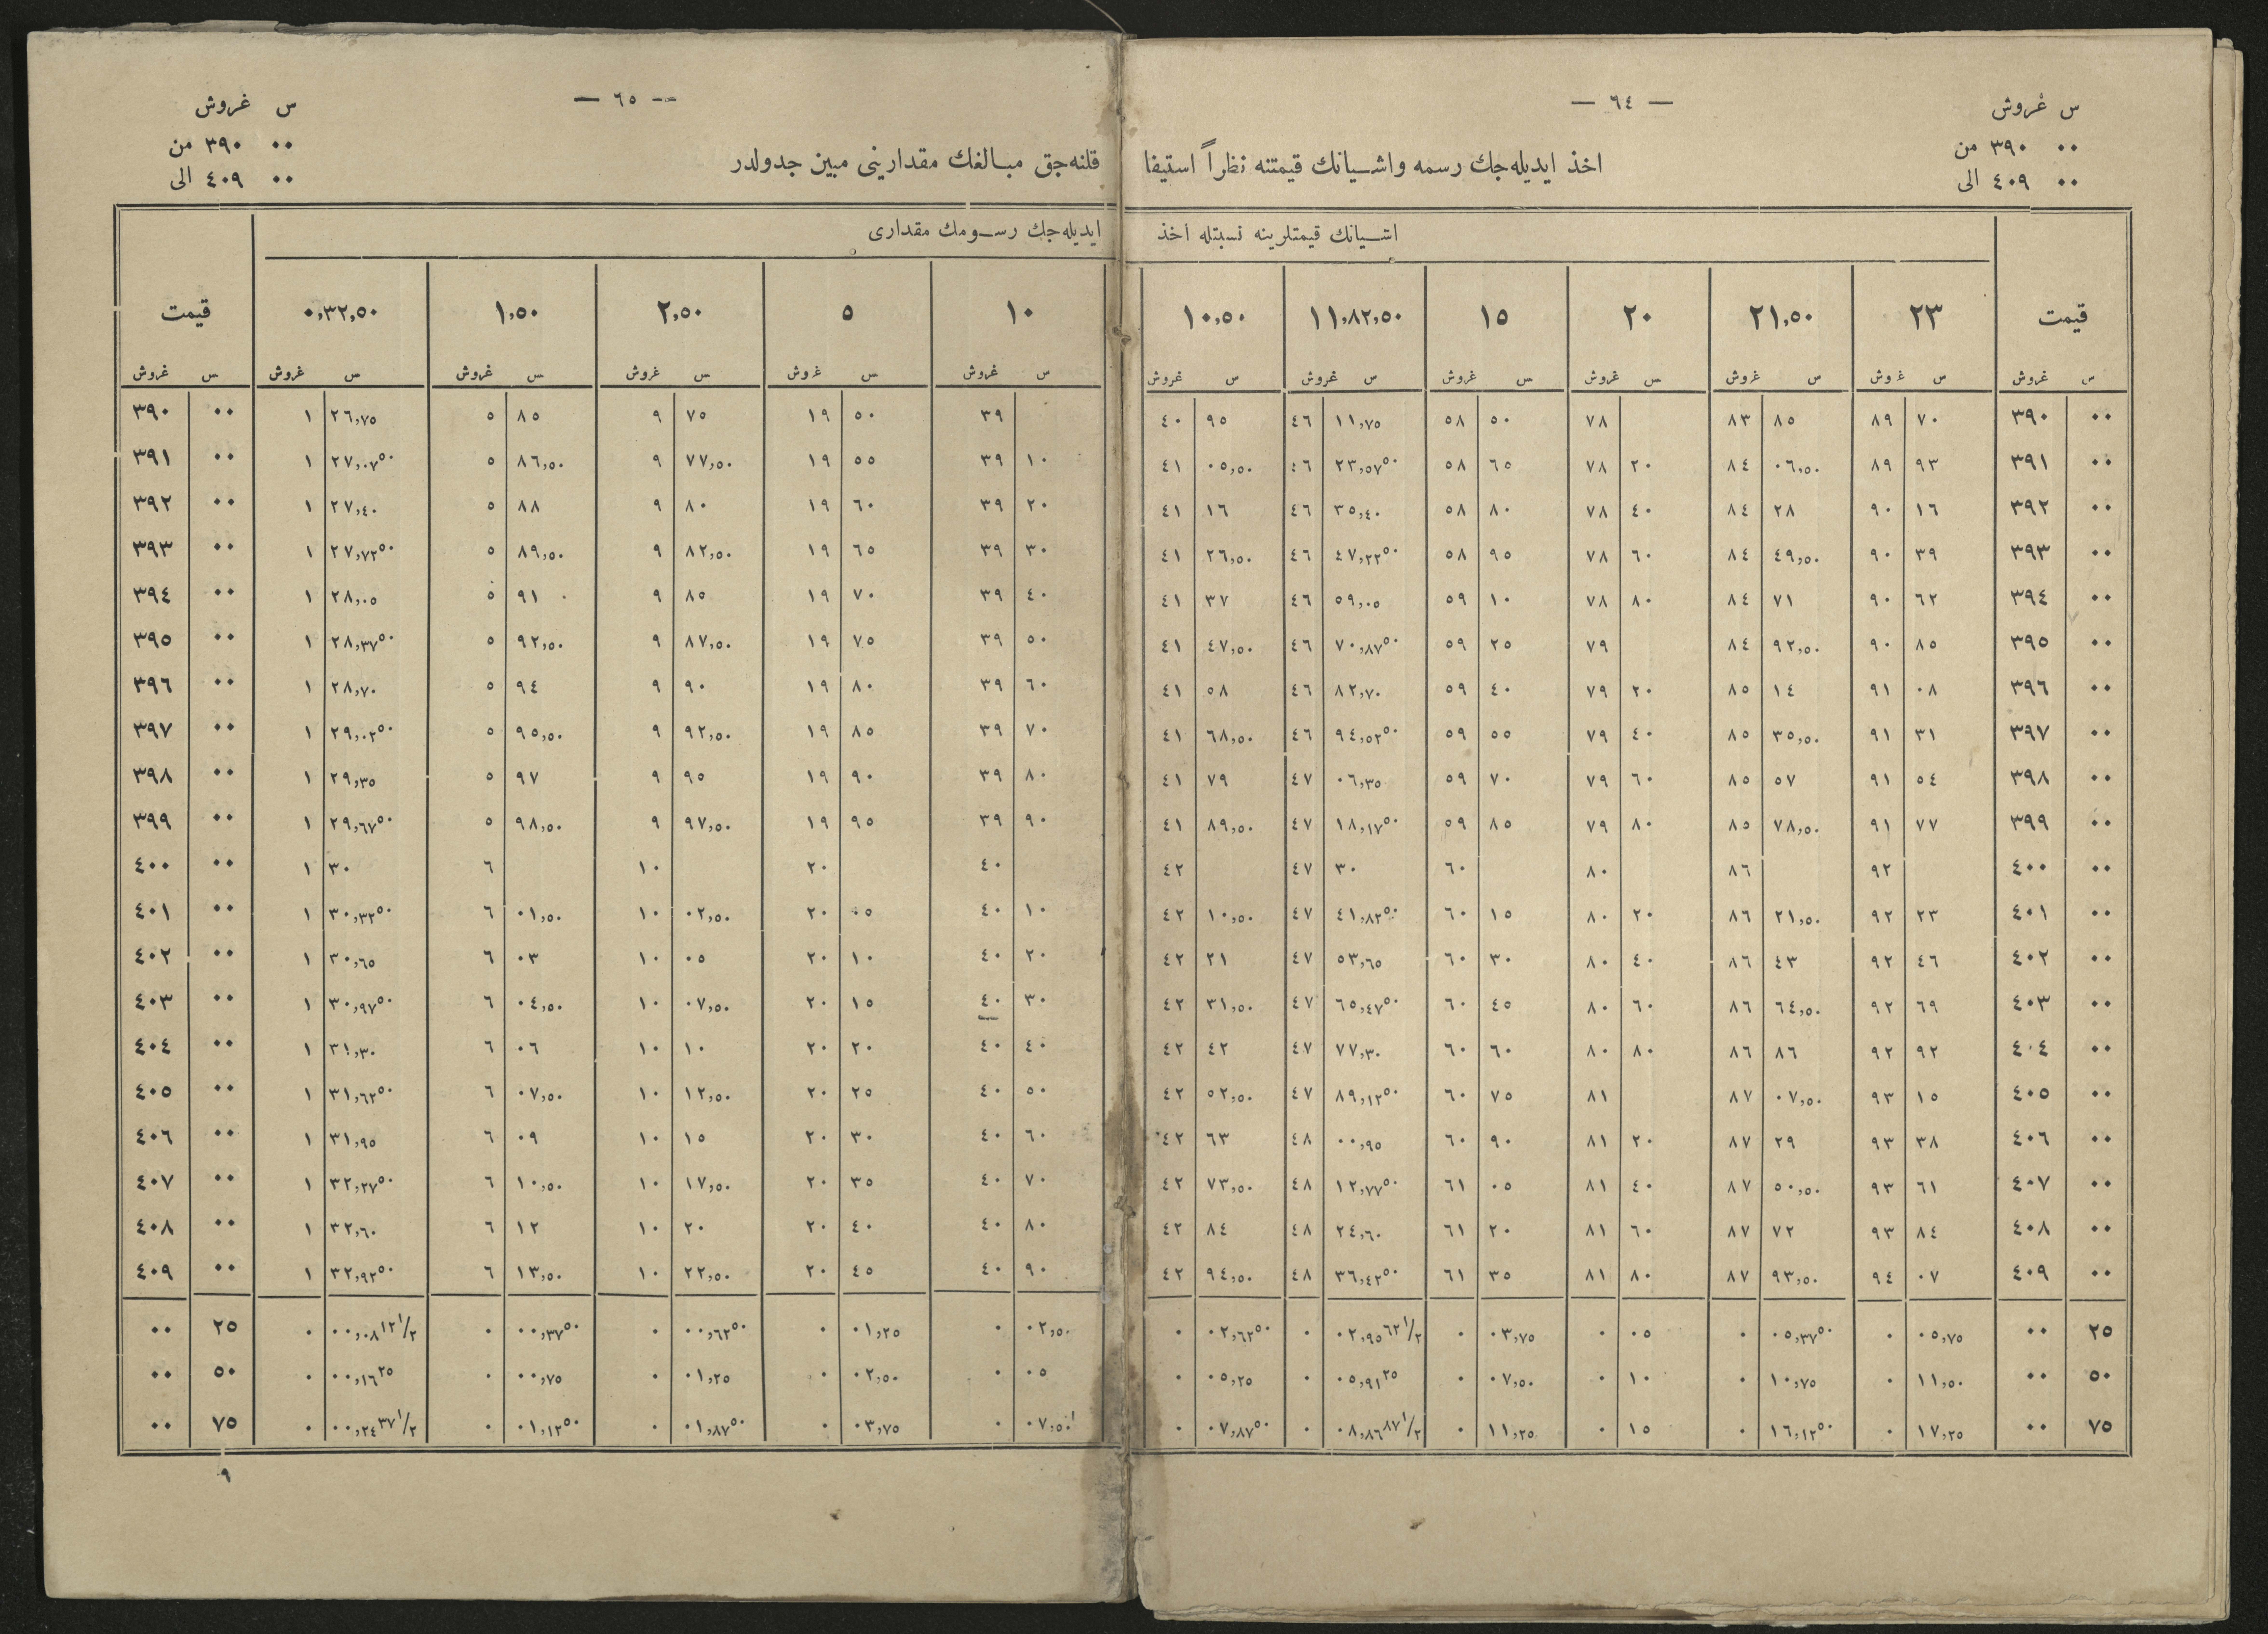 — ٦٤ —
س غروش
٠٠ ٣٩٠ من
٠٠ ٤٠٩ الى
اخذ ايديله‌جك رسمه واشيانك قيمتنه نظراً استيفا
اشيانك قيمتلرينه نسبتله اخذ
قيمت ٢٣ ٢١,٥٠ ٢٠ ١٥ ١١,٨٢,٥٠ ١٠,٥٠
س غروش س غروش س غروش س غروش س غروش س غروش س غروش
٠٠ ٣٩٠ ٧٠ ٨٩ ٨٥ ٨٣ ٧٨ ٥٠ ٥٨ ١١,٧٥ ٤٦ ٩٥ ٤٠
٠٠ ٣٩١ ٩٣ ٨٩ ٠٦,٥٠ ٨٤ ٢٠ ٧٨ ٦٥ ٥٨ ٢٣,٥٧٥٠ ٤٦ ٠٥,٥٠ ٤١
٠٠ ٣٩٢ ١٦ ٩٠ ٢٨ ٨٤ ٤٠ ٧٨ ٨٠ ٥٨ ٣٥,٤٠ ٤٦ ١٦ ٤١
٠٠ ٣٩٣ ٣٩ ٩٠ ٤٩,٥٠ ٨٤ ٦٠ ٧٨ ٩٥ ٥٨ ٤٧,٢٢٥٠ ٤٦ ٢٦,٥٠ ٤١
٠٠ ٣٩٤ ٦٢ ٩٠ ٧١ ٨٤ ٨٠ ٧٨ ١٠ ٥٩ ٥٩,٠٥ ٤٦ ٣٧ ٤١
٠٠ ٣٩٥ ٨٥ ٩٠ ٩٢,٥٠ ٨٤ ٧٩ ٢٥ ٥٩ ٧٠,٨٧٥٠ ٤٦ ٤٧,٥٠ ٤١
٠٠ ٣٩٦ ٠٨ ٩١ ١٤ ٨٥ ٢٠ ٧٩ ٤٠ ٥٩ ٨٢,٧٠ ٤٦ ٥٨ ٤١
٠٠ ٣٩٧ ٣١ ٩١ ٣٥,٥٠ ٨٥ ٤٠ ٧٩ ٥٥ ٥٩ ٩٤,٥٢٥٠ ٤٦ ٦٨,٥٠ ٤١
٠٠ ٣٩٨ ٥٤ ٩١ ٥٧ ٨٥ ٦٠ ٧٩ ٧٠ ٥٩ ٠٦,٣٥ ٤٧ ٧٩ ٤١
٠٠ ٣٩٩ ٧٧ ٩١ ٧٨,٥٠ ٨٥ ٨٠ ٧٩ ٨٥ ٥٩ ١٨,١٧٥٠ ٤٧ ٨٩,٥٠ ٤١
٠٠ ٤٠٠ ٩٢ ٨٦ ٨٠ ٦٠ ٣٠ ٤٧ ٤٢
٠٠ ٤٠١ ٢٣ ٩٢ ٢١,٥٠ ٨٦ ٢٠ ٨٠ ١٥ ٦٠ ٤١,٨٢٥٠ ٤٧ ١٠,٥٠ ٤٢
٠٠ ٤٠٢ ٤٦ ٩٢ ٤٣ ٨٦ ٤٠ ٨٠ ٣٠ ٦٠ ٥٣,٦٥ ٤٧ ٢١ ٤٢
٠٠ ٤٠٣ ٦٩ ٩٢ ٦٤,٥٠ ٨٦ ٦٠ ٨٠ ٤٥ ٦٠ ٦٥,٤٧٥٠ ٤٧ ٣١,٥٠ ٤٢
٠٠ ٤٠٤ ٩٢ ٩٢ ٨٦ ٨٦ ٨٠ ٨٠ ٦٠ ٦٠ ٧٧,٣٠ ٤٧ ٤٢ ٤٢
٠٠ ٤٠٥ ١٥ ٩٣ ٠٧,٥٠ ٨٧ ٨١ ٧٥ ٦٠ ٨٩,١٢٥٠ ٤٧ ٥٢,٥٠ ٤٢
٠٠ ٤٠٦ ٣٨ ٩٣ ٢٩ ٨٧ ٢٠ ٨١ ٩٠ ٦٠ ٠٠,٩٥ ٤٨ ٦٣ ٤٢
٠٠ ٤٠٧ ٦١ ٩٣ ٥٠,٥٠ ٨٧ ٤٠ ٨١ ٠٥ ٦١ ١٢,٧٧٥٠ ٤٨ ٧٣,٥٠ ٤٢
٠٠ ٤٠٨ ٨٤ ٩٣ ٧٢ ٨٧ ٦٠ ٨١ ٢٠ ٦١ ٢٤,٦٠ ٤٨ ٨٤ ٤٢
٠٠ ٤٠٩ ٠٧ ٩٤ ٩٣,٥٠ ٨٧ ٨٠ ٨١ ٣٥ ٦١ ٣٦,٤٢٥٠ ٤٨ ٩٤,٥٠ ٤٢
٢٥ ٠٠ ٠٥,٧٥ ٠ ٠٥,٣٧٥٠ ٠ ٠٥ ٠ ٠٣,٧٥ ٠ ٠٢,٩٥٦٢١/٢ ٠ ٠٢,٦٢٥٠ ٠
٥٠ ٠٠ ١١,٥٠ ٠ ١٠,٧٥ ٠ ١٠ ٠ ٠٧,٥٠ ٠ ٠٥,٩١٢٥ ٠ ٠٥,٢٥ ٠
٧٥ ٠٠ ١٧,٢٥ ٠ ١٦,١٢٥٠ ٠ ١٥ ٠ ١١,٢٥ ٠ ٠٨,٨٦٨٧١/٢ ٠ ٠٧,٨٧٥٠ ٠
— ٦٥ —
س غروش
٠٠ ٣٩٠ من
٠٠ ٤٠٩ الى
قلنه‌جق مبالغك مقدارينى مبين جدولدر
ايديله‌جك رسومك مقدارى
١٠ ٥ ٢,٥٠ ١,٥٠ ٠,٣٢,٥٠ قيمت
س غروش س غروش س غروش س غروش س غروش س غروش
٣٩ ٥٠ ١٩ ٧٥ ٩ ٨٥ ٥ ٢٦,٧٥ ١ ٠٠ ٣٩٠
١٠ ٣٩ ٥٥ ١٩ ٧٧,٥٠ ٩ ٨٦,٥٠ ٥ ٢٧,٠٧٥٠ ١ ٠٠ ٣٩١
٢٠ ٣٩ ٦٠ ١٩ ٨٠ ٩ ٨٨ ٥ ٢٧,٤٠ ١ ٠٠ ٣٩٢
٣٠ ٣٩ ٦٥ ١٩ ٨٢,٥٠ ٩ ٨٩,٥٠ ٥ ٢٧,٧٢٥٠ ١ ٠٠ ٣٩٣
٤٠ ٣٩ ٧٠ ١٩ ٨٥ ٩ ٩١ ٥ ٢٨,٠٥ ١ ٠٠ ٣٩٤
٥٠ ٣٩ ٧٥ ١٩ ٨٧,٥٠ ٩ ٩٢,٥٠ ٥ ٢٨,٣٧٥٠ ١ ٠٠ ٣٩٥
٦٠ ٣٩ ٨٠ ١٩ ٩٠ ٩ ٩٤ ٥ ٢٨,٧٠ ١ ٠٠ ٣٩٦
٧٠ ٣٩ ٨٥ ١٩ ٩٢,٥٠ ٩ ٩٥,٥٠ ٥ ٢٩,٠٢٥٠ ١ ٠٠ ٣٩٧
٨٠ ٣٩ ٩٠ ١٩ ٩٥ ٩ ٩٧ ٥ ٢٩,٣٥ ١ ٠٠ ٣٩٨
٩٠ ٣٩ ٩٥ ١٩ ٩٧,٥٠ ٩ ٩٨,٥٠ ٥ ٢٩,٦٧٥٠ ١ ٠٠ ٣٩٩
٤٠ ٢٠ ١٠ ٦ ٣٠ ١ ٠٠ ٤٠٠
١٠ ٤٠ ٠٥ ٢٠ ٠٢,٥٠ ١٠ ٠١,٥٠ ٦ ٣٠,٣٢٥٠ ١ ٠٠ ٤٠١
٢٠ ٤٠ ١٠ ٢٠ ٠٥ ١٠ ٠٣ ٦ ٣٠,٦٥ ١ ٠٠ ٤٠٢
٣٠ ٤٠ ١٥ ٢٠ ٠٧,٥٠ ١٠ ٠٤,٥٠ ٦ ٣٠,٩٧٥٠ ١ ٠٠ ٤٠٣
٤٠ ٤٠ ٢٠ ٢٠ ١٠ ١٠ ٠٦ ٦ ٣١,٣٠ ١ ٠٠ ٤٠٤
٥٠ ٤٠ ٢٥ ٢٠ ١٢,٥٠ ١٠ ٠٧,٥٠ ٦ ٣١,٦٢٥٠ ١ ٠٠ ٤٠٥
٦٠ ٤٠ ٣٠ ٢٠ ١٥ ١٠ ٠٩ ٦ ٣١,٩٥ ١ ٠٠ ٤٠٦
٧٠ ٤٠ ٣٥ ٢٠ ١٧,٥٠ ١٠ ١٠,٥٠ ٦ ٣٢,٢٧٥٠ ١ ٠٠ ٤٠٧
٨٠ ٤٠ ٤٠ ٢٠ ٢٠ ١٠ ١٢ ٦ ٣٢,٦٠ ١ ٠٠ ٤٠٨
٩٠ ٤٠ ٤٥ ٢٠ ٢٢,٥٠ ١٠ ١٣,٥٠ ٦ ٣٢,٩٢٥٠ ١ ٠٠ ٤٠٩
٠٢,٥٠ ٠ ٠١,٢٥ ٠ ٠٠,٦٢٥٠ ٠ ٠٠,٣٧٥٠ ٠ ٠٠,٠٨١٢١/٢ ٠ ٢٥ ٠٠
٠٥ ٠ ٠٢,٥٠ ٠ ٠١,٢٥ ٠ ٠٠,٧٥ ٠ ٠٠,١٦٢٥ ٠ ٥٠ ٠٠
٠٧,٥٠ ٠ ٠٣,٧٥ ٠ ٠١,٨٧٥٠ ٠ ٠١,١٢٥٠ ٠ ٠٠,٢٤٣٧١/٢ ٠ ٧٥ ٠٠
٩